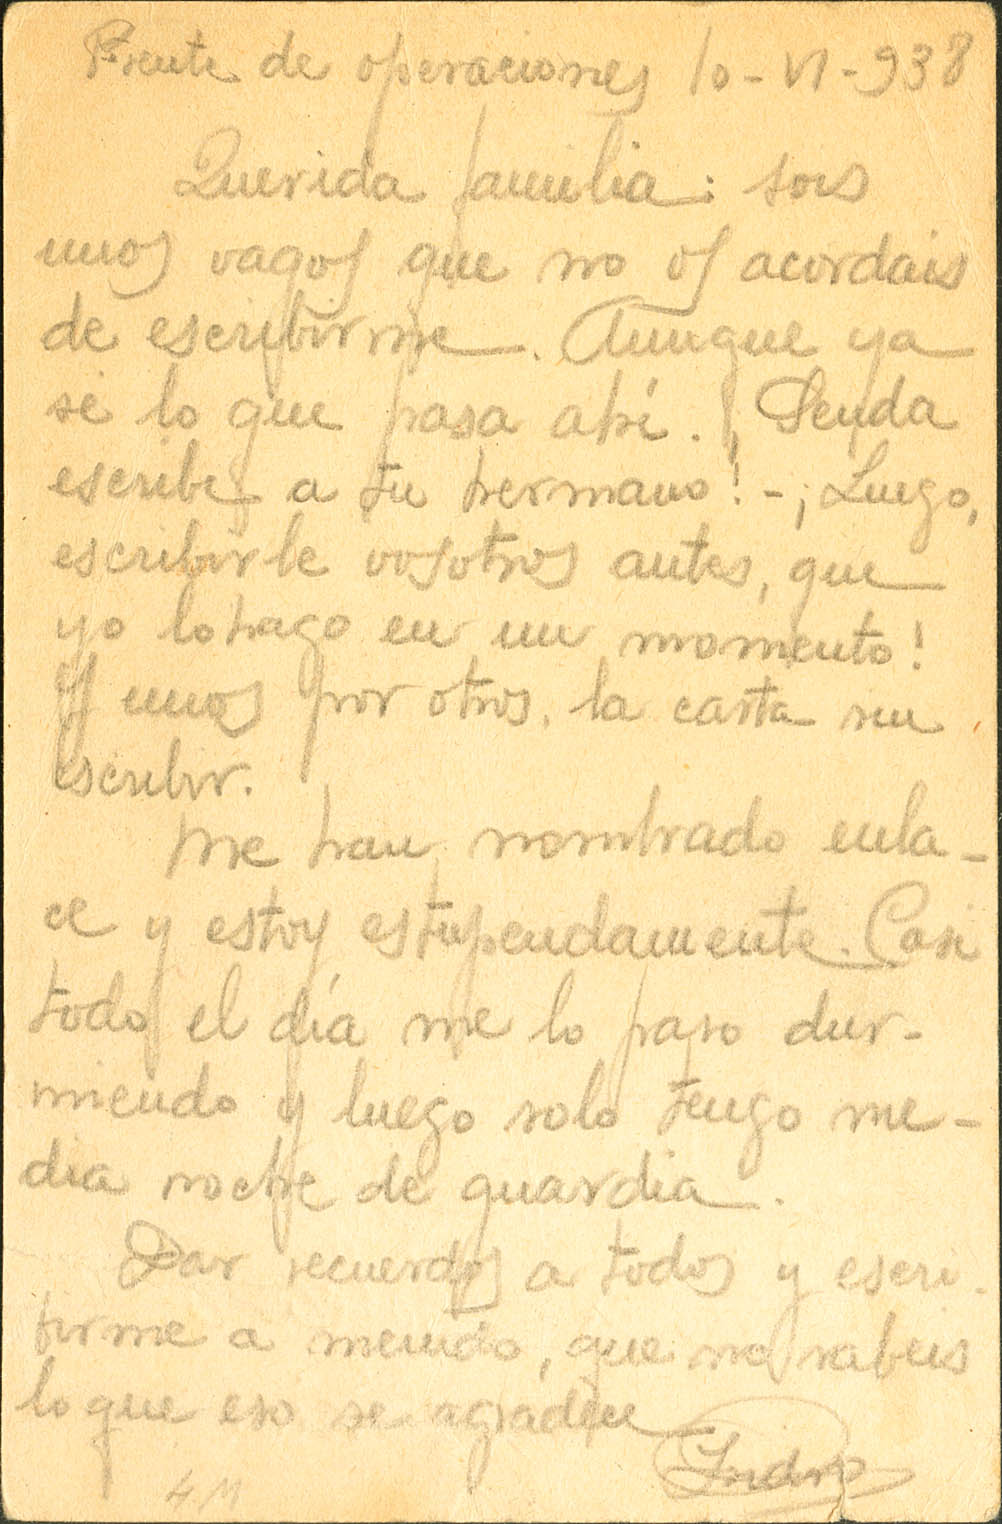 Frente de operaciones 10-VI-938
Querida familia: sois
unos vagos que no os acordais
de escribirme. Aunque ya
se lo que pasa ahí. ¡Senda
escribe a tu hermano! - ¡Luego,
escribirle vosotros antes, que
yo lo hago en un momento!
Y unos por otros, la carta sin
escribir.
Me han nombrado enla-
ce y estoy estupendamente. Casi
todo el día me lo paso dur-
miendo y luego solo tengo me-
dia noche de guardia.
Dar recuerdos a todos y escri-
birme a menudo, que no sabeis
lo que eso se agradece
Isidro
4M